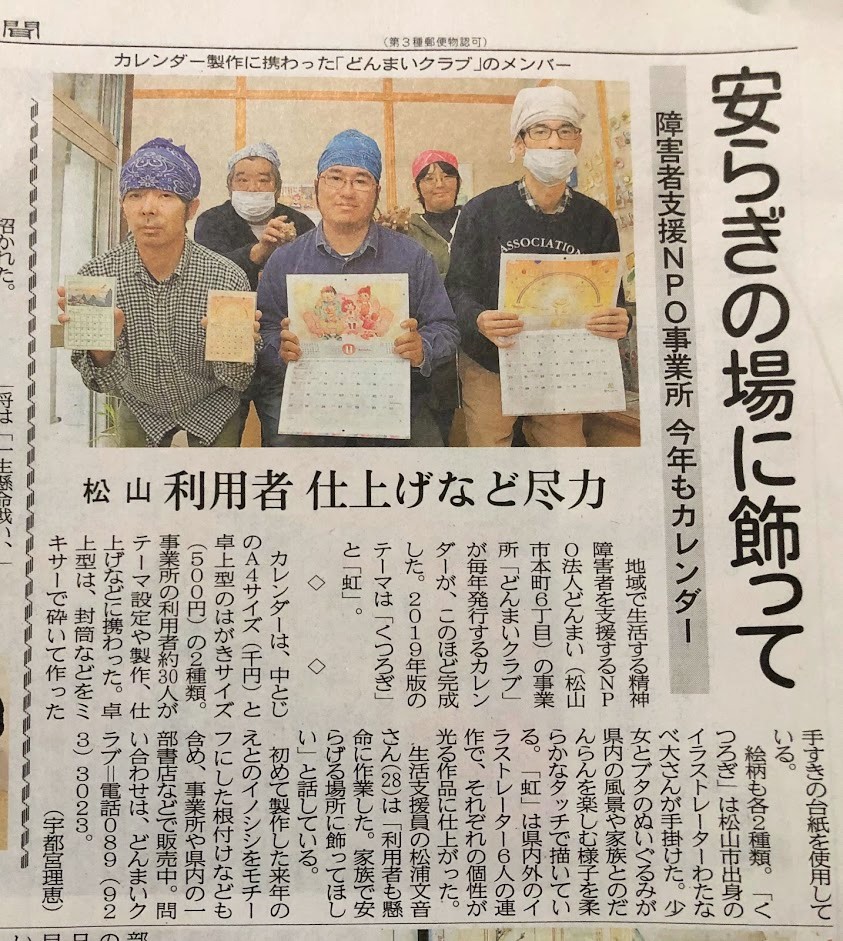 聞
(第3種郵便物認可)
安らぎの場に飾って
障害者支援NPO事業所 今年もカレンダー
カレンダー製作に携わった「どんまいクラブ」のメンバー
ASSOCIATION
11
松山 利用者 仕上げなど尽力
地域で生活する精神
障害者を支援するNP
O法人どんまい（松山
市本町6丁目）の事業
所「どんまいクラブ」
が毎年発行するカレン
ダーが、このほど完成
した。2019年版の
テーマは「くつろぎ」
と「虹」。
◇　◇
カレンダーは、中とじ
のA4サイズ（千円）と
卓上型のはがきサイズ
（500円）の2種類。
事業所の利用者約30人が
テーマ設定や製作、仕
上げなどに携わった。卓
上型は、封筒などをミ
キサーで砕いて作った
手すきの台紙を使用して
いる。
絵柄も各2種類。「く
つろぎ」は松山市出身の
イラストレーターわたな
べ大さんが手掛けた。少
女とブタのぬいぐるみが
県内の風景や家族とのだ
んらんを楽しむ様子を柔
らかなタッチで描いてい
る。「虹」は県内外のイ
ラストレーター6人の連
作で、それぞれの個性が
光る作品に仕上がった。
生活支援員の松浦文音
さん(28)は「利用者も懸
命に作業した。家族で安
らげる場所に飾ってほし
い」と話している。
初めて製作した来年の
えとのイノシシをモチー
フにした根付けなども
含め、事業所や県内の一
部書店などで販売中。問
い合わせは、どんまいク
ラブ＝電話089（92
3）3023。
（宇都宮理恵）
招かれた。
将は「一生懸命戦い、